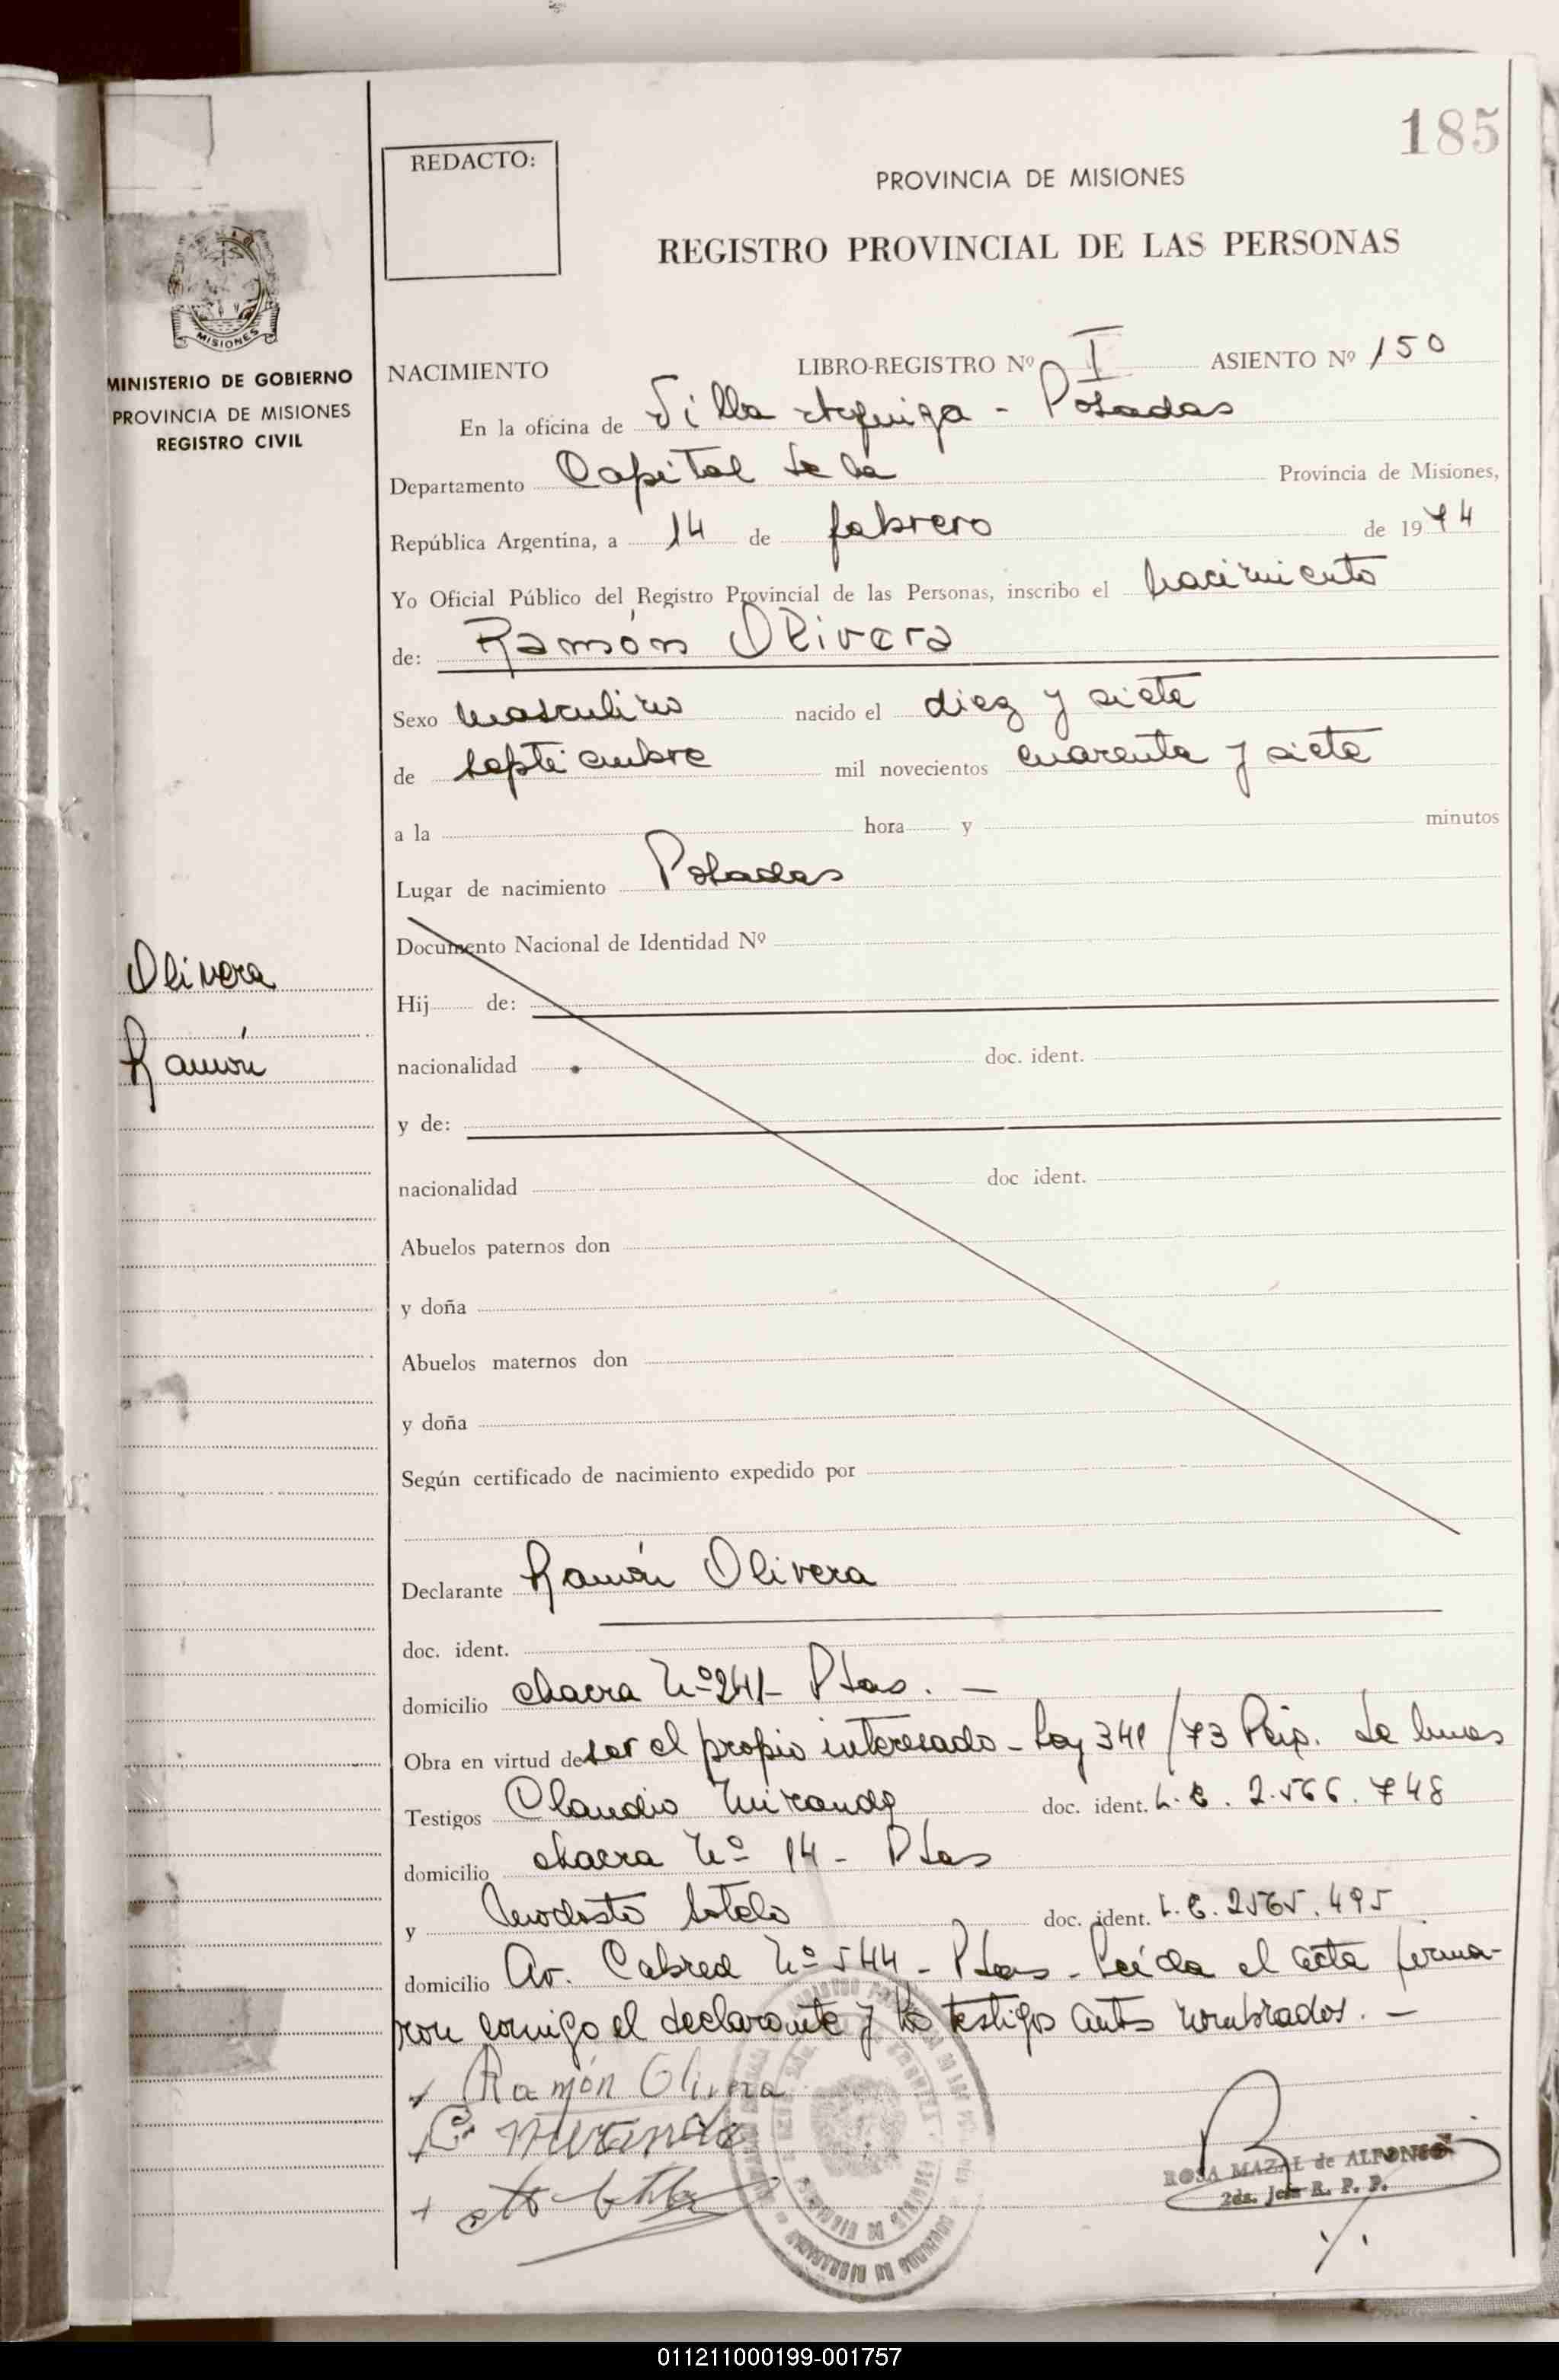 185
REDACTO:
PROVINCIA DE MISIONES
REGISTRO PROVINCIAL DE LAS PERSONAS
MISIONES
MINISTERIO DE GOBIERNO
PROVINCIA DE MISIONES
REGISTRO CIVIL
NACIMIENTO LIBRO-REGISTRO Nº I ASIENTO Nº 150
En la oficina de Villa Urquiza - Posadas
Departamento Capital de la Provincia de Misiones,
República Argentina, a 14 de febrero de 1974
Yo Oficial Público del Registro Provincial de las Personas, inscribo el nacimiento
de: Ramón Olivera
Sexo masculino nacido el diez y siete
de septiembre mil novecientos cuarenta y siete
a la hora y minutos
Lugar de nacimiento Posadas
Documento Nacional de Identidad Nº
Olivera
Ramón
Hij de:
nacionalidad doc. ident.
y de:
nacionalidad doc ident.
Abuelos paternos don
y doña
Abuelos maternos don
y doña
Según certificado de nacimiento expedido por
Declarante Ramón Olivera
doc. ident.
domicilio chacra Nº 241- Pdas. -
Obra en virtud de ser el propio interesado - Ley 341/73 Reip. de
Testigos Claudio Miranda doc. ident. L.E. 2.566.748
domicilio chacra Nº 14 - Pdas
y Modesto Sotelo doc. ident. L.E. 2565.495
domicilio Av. Cabred Nº 544 - Pdas - Leída el acta firma-
ron conmigo el declarante y los testigos antes nombrados. -
Ramón Olivera
C. Miranda
ROSA MAZAL de ALFONSO
2da. Jefa R. P. P.
011211000199-001757